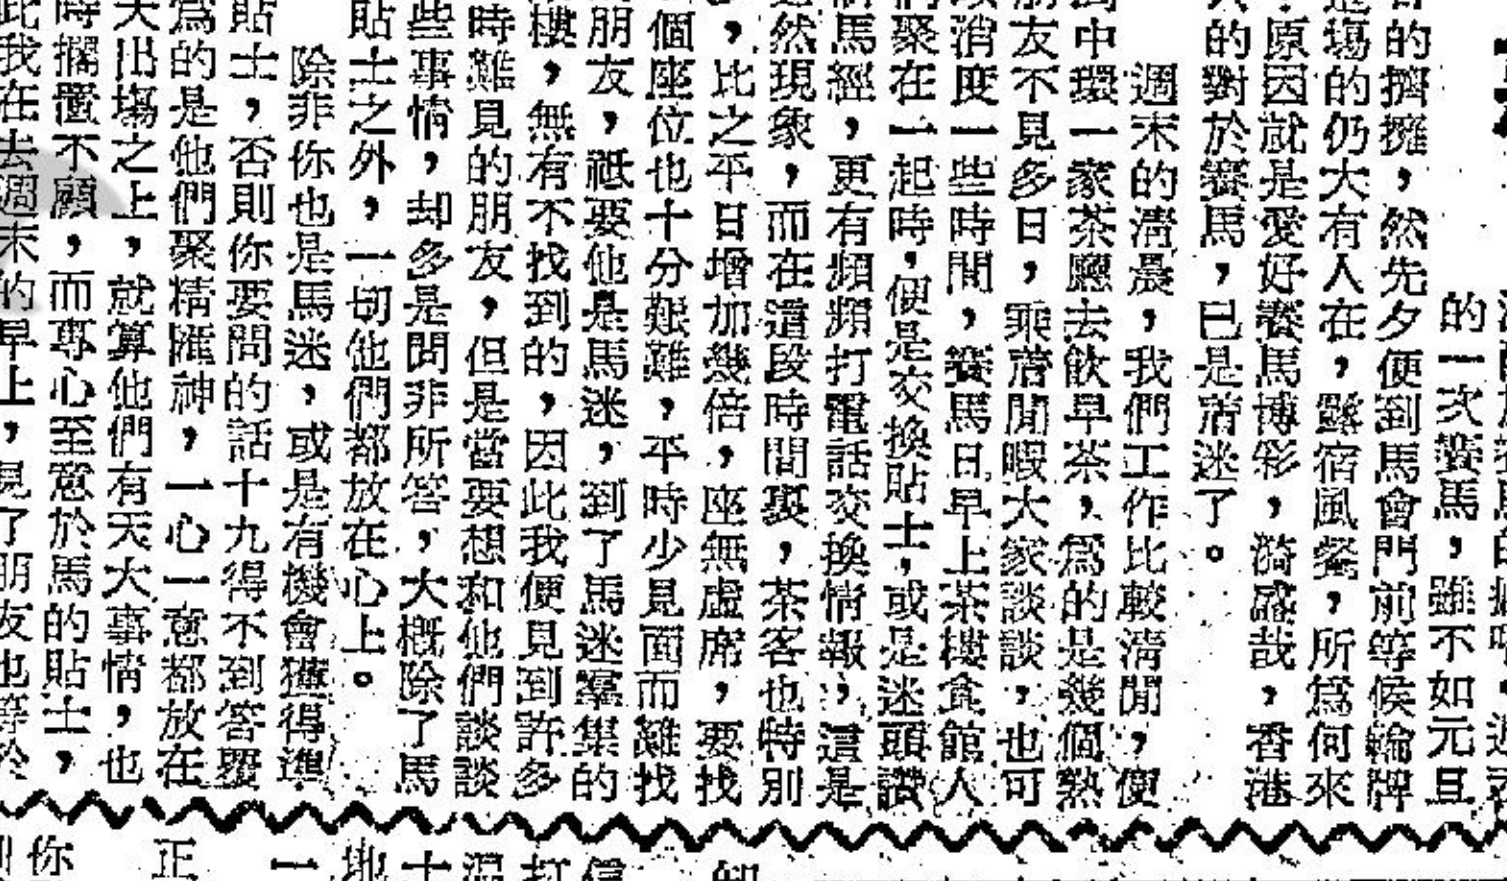 的一次賽馬，雖不如元旦
的擠擁，然先夕便到馬會門前等候輪牌
塲的仍大有人在，露宿風餐，所爲何來
原因就是愛好賽馬博彩，猗盛哉，香港
的對於賽馬，已是着迷了。
週末的清晨，我們工作比較清閒，便
中環一家茶廳去飲早茶，爲的是幾個熟
友不見多日，乘着閒暇大家談談，也可
消度一些時間，賽馬日早上茶樓食館人
聚在一起時，便是交換貼士，或是迷頭讚
馬經，更有頻頻打電話交換情報，這是
然現象，而在這段時間裏，茶客也特別
，比之平日增加幾倍，座無虛席，要找
個座位也十分艱難，平時少見面而難找
朋友，祗要他是馬迷，到了馬迷羣集的
樓，無有不找到的，因此我便見到許多
時難見的朋友，但是當要想和他們談談
些事情，却多是問非所答，大概除了馬
貼士之外，一切他們都放在心上。
除非你也是馬迷，或是有機會獲得準
貼士，否則你要問的話十九得不到答覆
爲的是他們聚精匯神，一心一意都放在
天出塲之上，就算他們有天大事情，也
時擱置不顧，而專心至意於馬的貼士，
此我在去週末的早上，見了朋友也等於
你
正
一
地
十
温
打
信